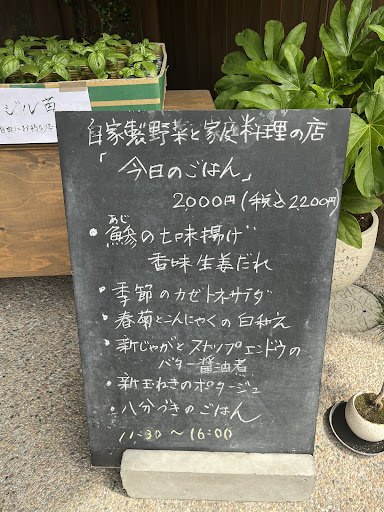 自家製野菜と家庭料理の店
「今日のごはん」
2,000円(税込2,200円)
あじ
・鯵の七味揚げ
香味生姜だれ
・季節のカゼトネサラダ
・春菊とこんにゃくの白和え
・新じゃがとスナップエンドウの
バター醤油煮
・新玉ねぎのポタージュ
・八分づきのごはん
11:30〜16:00
ジル苗